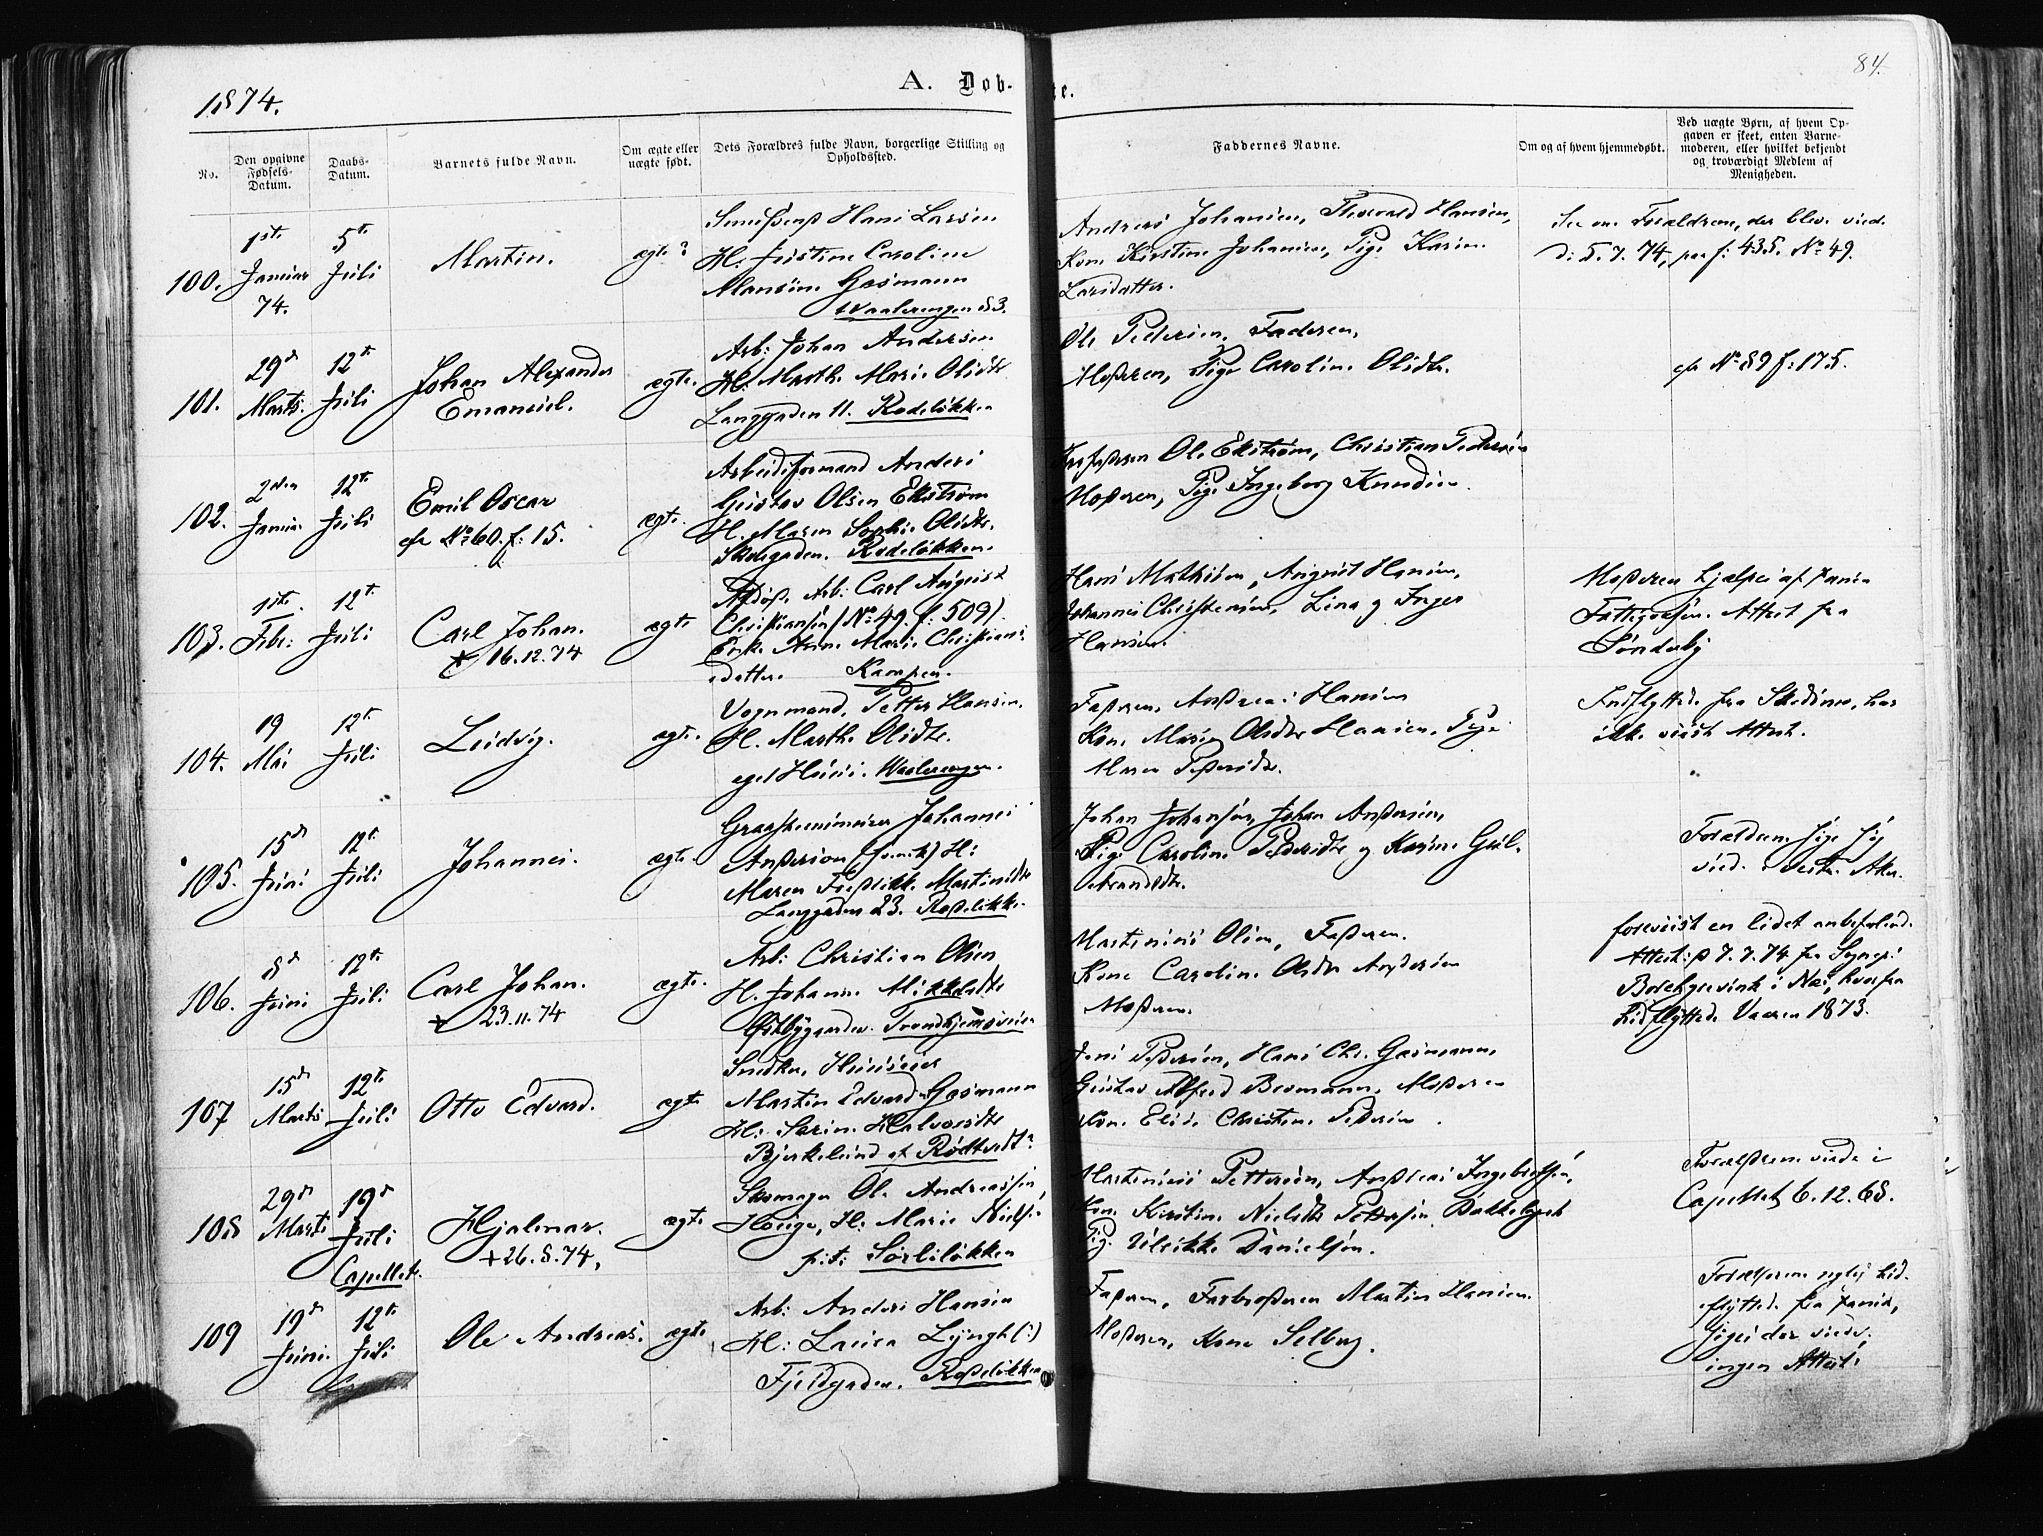 1874.
A. Døb-
te.
84.
No.
Den opgivne
Fødsels-
Datum.
Daabs-
Datum.
Barnets fulde Navn.
Om ægte eller
uægte født.
Dets Forældres fulde Navn, borgerlige Stilling og
Opholdssted.
Faddernes Navne.
Om og af hvem hjemmedøbt.
Ved uægte Børn, af hvem Op-
gaven er skeet, enten Barne-
moderen, eller hvilket bekjendt
og troværdigt Medlem af
Menigheden.
100.
1ste
Januar
74.
5te
Juli
Martin.
ægte?
Hans Larsen
H. Justine Caroline
Gasmann
Waalerengen 83.
Andreas Johansen, Thorvald Hansen,
Kone Kirstine Johansen, Pige Karen
Larsdatter.
See om Forældrene, der blev viede
d: 5. 7. 74, paa f: 435. No 49.
101.
29d
Marts.
12te
Juli
Johan Alexander
Emanuel.
ægte.
Arb: Johan Andersen
H: Marthe Marie Olsdtr
Langgaden 11. Rodeløkken
Ole Pedersen, Faderen,
Moderen, Pige Caroline Olsdtr.
cfr No 89 f: 175.
102.
2den
Januar
12te
Juli
Emil Oscar
cfr No 60. f: 15.
ægte.
Arbeidsformand Anders
Gustav Olsen Ekstrøm
H. Maren Sophie Olsdtr.
Skovgaden. Rodeløkken.
Farfaderen Ole Ekstrøm, Christian Pedersen
Moderen, Pige Ingeborg Knudsen.
103.
1ste
Febr:
12te
Juli
Carl Johan.
+ 16.12.74
ægte
Afdøde Arb: Carl August
Christiansen (No 49. f: 509).
Enke Anne Marie Christians-
datter. Kampen.
Hans Mathisen, August Hansen,
Johannes Christensen, Lina og Inger
Hansen.
Moderen hjælpes af
Attest fra
Sønderby
104.
19
Mai
12te
Juli
Ludvig.
ægte.
Vognmand, Petter Hansen.
H. Marthe Olsdtr.
eget Huus. Waalerengen.
Faderen, Andreas Hansen
Kone Marie Olsdtr Hansen, Pige
Maren Pedersdtr.
Indflyttede fra Skedsmo, har
ikke viist Attest.
105.
15de
Juni
12te
Juli
Johannes.
ægte.
Johannes
Anderson (svensk) H:
Maren Fredrikke Martinsdtr
Langgaden 23. Rodeløkken
Johan Johansen, Johan Andersen,
Pige Caroline Pedersdtr og Karen Gul-
brandsdtr.
Forældrene sige sig
viede i Vestre Aker.
106.
8de
Juni
12te
Juli
Carl Johan.
+ 23.11.74
ægte.
Arb: Christian Olsen
H. Johanne Mikkelsdtr
Østbygaarden. Trondhjemsveien
Martinius Olsen, Faderen.
Kone Caroline Olsdtr Andersen
Moderen.
foreviist en lidet anbefalende
Attest: d 7. 7. 74 fra Sognepr:
i Næs, hvorfra
hidflyttede Vaaren 1873.
107
15de
Marts
12te
Juli
Otto Edvard.
ægte
Snedker, Huuseier
Martin Edvard Gasmann
H: Sørine Halvorsdtr
Bjerkelund af Rødtvedt?
Jens Pedersen, Hans Chr. Gasmann,
Gustav Alfred Bromann, Moderen
Kone Elise Christine Pedersen.
108
29de
Marts
19de
Juli
Capellet.
Hjalmar.
+ 26.8.74,
ægte
Skomager Ole Andreassen
Hauge, H: Marie Niels-
p.t: Sørliløkken
Martinius Pettersen, Andreas Ingebretsen,
Kone Kirstine Nielsdtr Pettersen, Bakkelykke
Pige Ulrikke Danielsen.
Forældrene viede i
Capellet 6.12.68.
109
19de
Juni.
12te
Juli
Ole Andreas.
ægte
Arb: Anders Hansen
H: Laura Lyngh(:)
Fjeldgaden. Rodeløkken
Faderen, Farbroderen Martin Hansen.
Moderen, Kone Selberg.
Forældrene nylig hid-
flyttede fra
siges der viede,
ingen Attest: